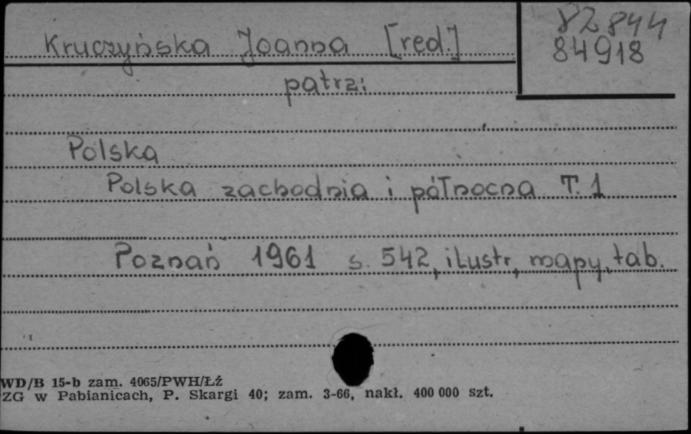 82844
Kruczyńska Joanna [red.]
84918
patrz:
Polska
Polska zachodnia i północna T. 1
Poznań 1961 s. 542, ilustr, mapy, tab.
WD/B 15-b zam. 4065/PWH/Łź
ZG w Pabianicach, P. Skargi 40; zam. 3-66, nakł. 400 000 szt.